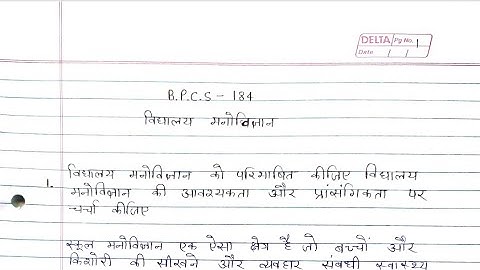 DELTA Pg No. 1
Date / /
B.P.C.S - 184
विधालय मनोविज्ञान
1. विधालय मनोविज्ञान को परिभाषित कीजिए विधालय
मनोविज्ञान की आवश्यकता और प्रांसंगिकता पर
चर्चा कीजिए
स्कूल मनोविज्ञान एक ऐसा क्षेत्र है जो बच्चों और
किशोरों की सीखने और व्यवहार संबंधी स्वास्थ्य